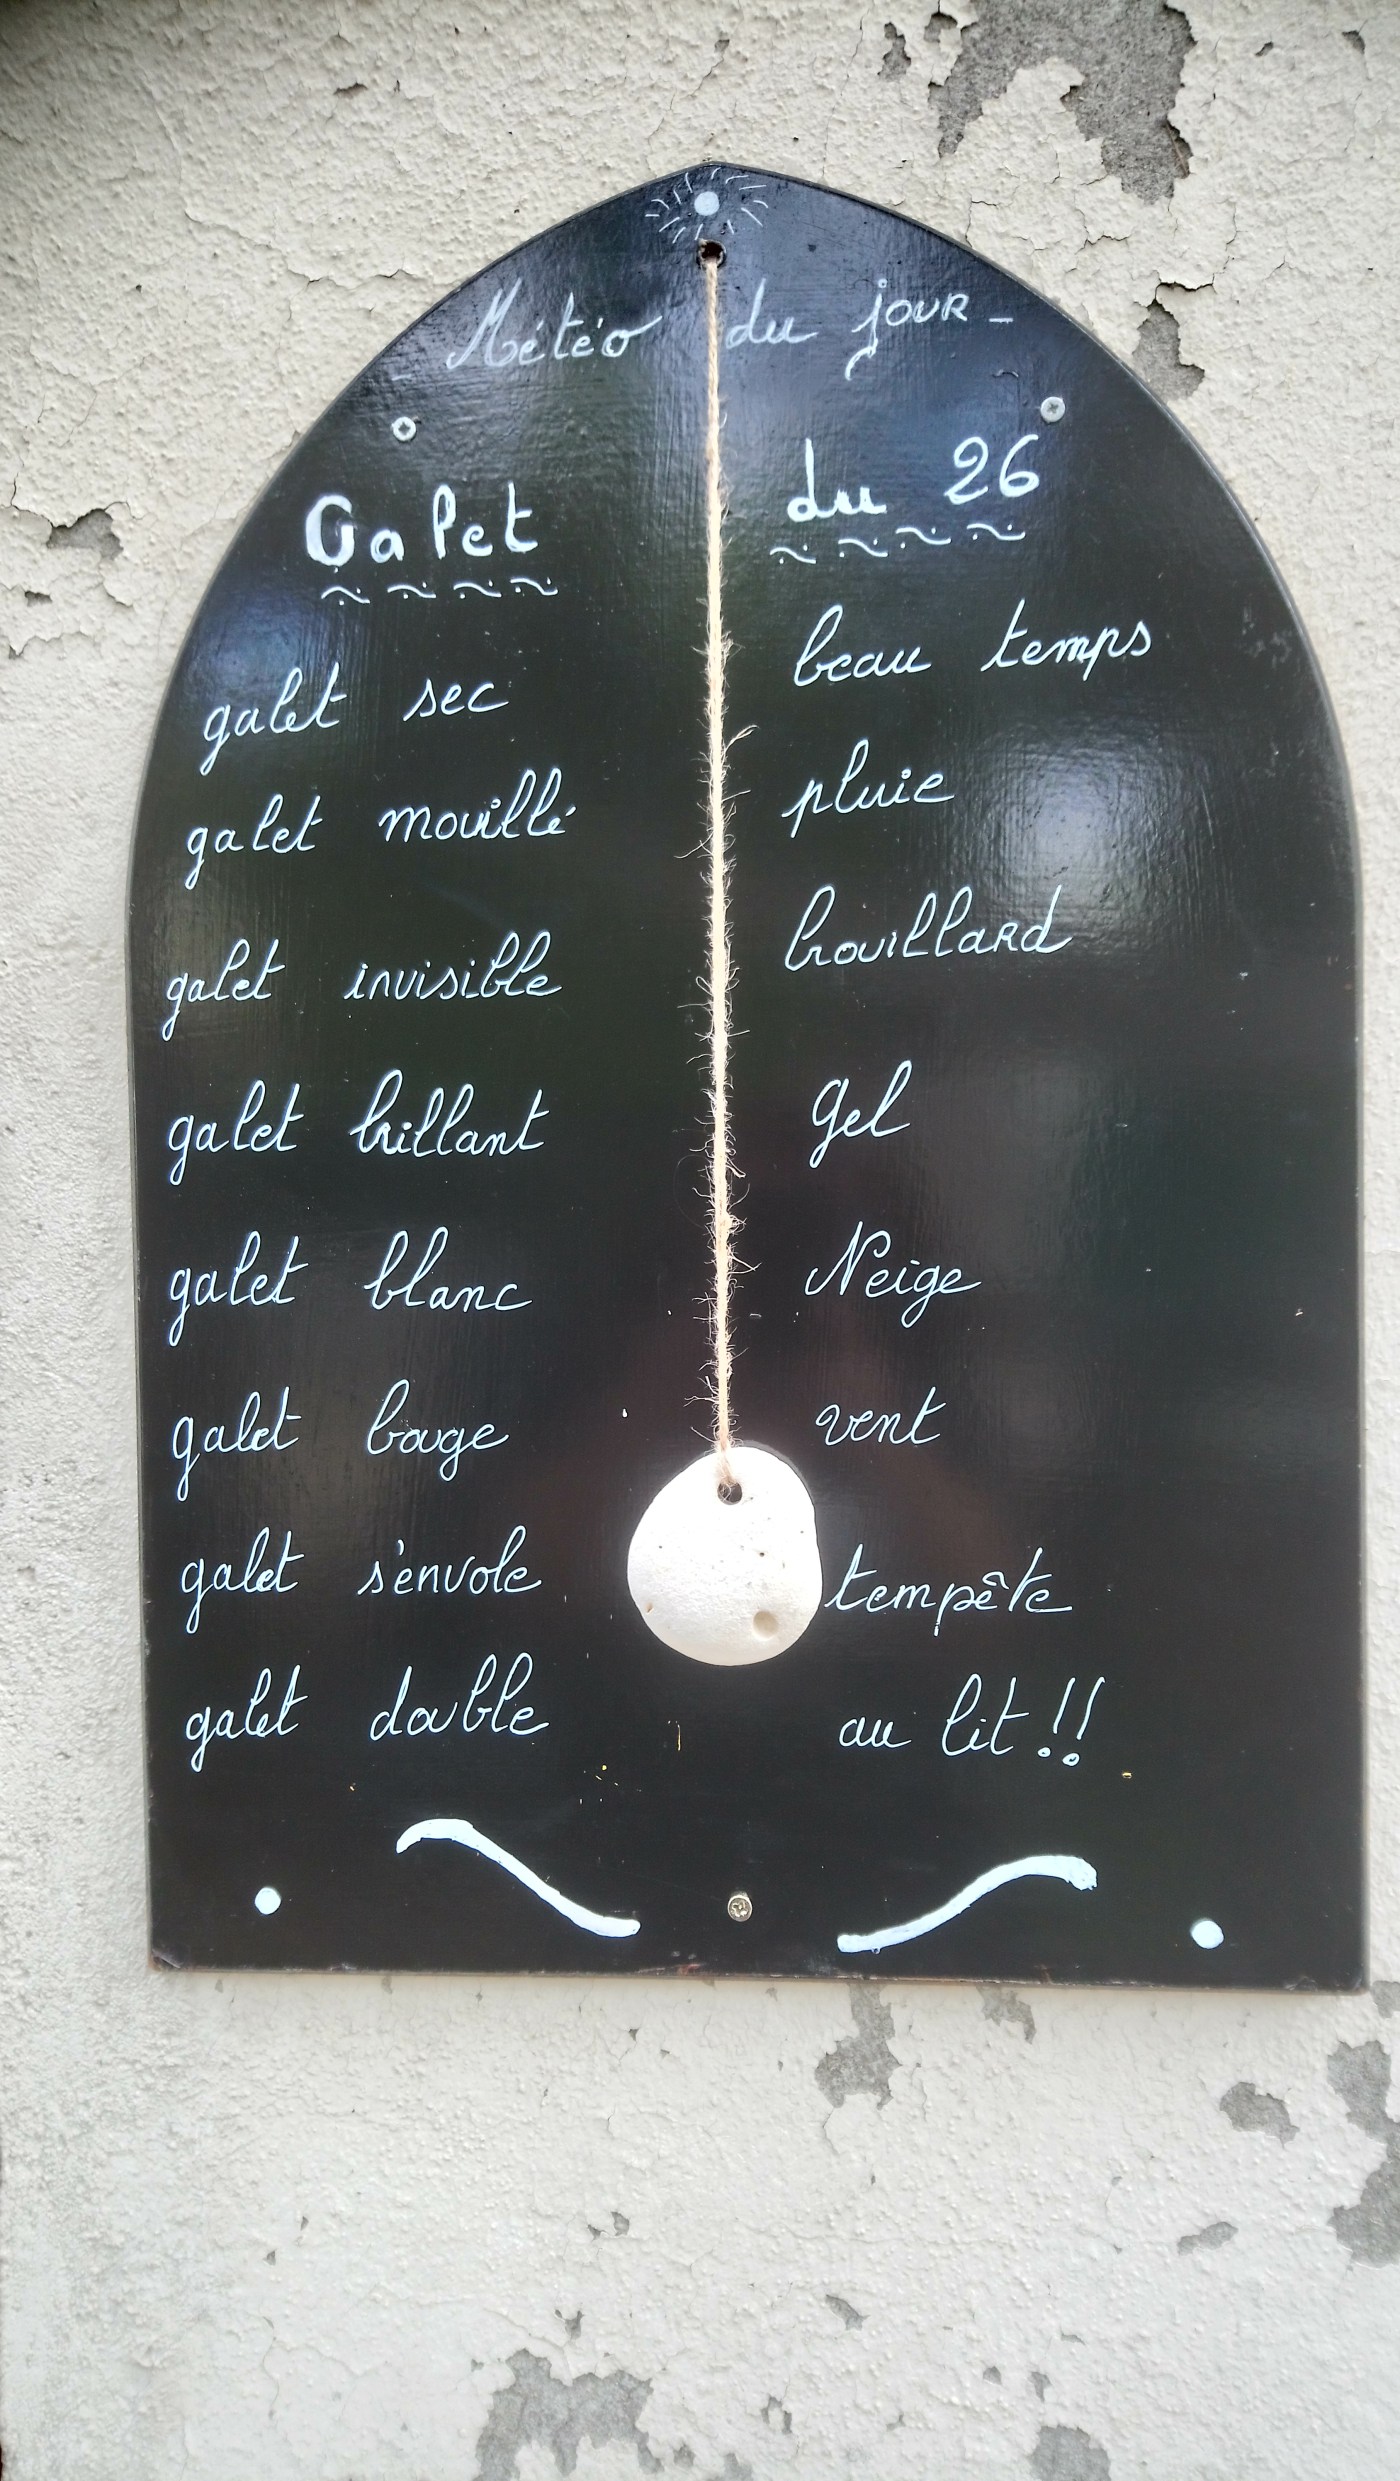 - Météo du jour -
Galet du 26
galet sec beau temps
galet mouillé pluie
galet invisible brouillard
galet brillant gel
galet blanc Neige
galet bouge vent
galet s'envole tempête
galet double au lit !!